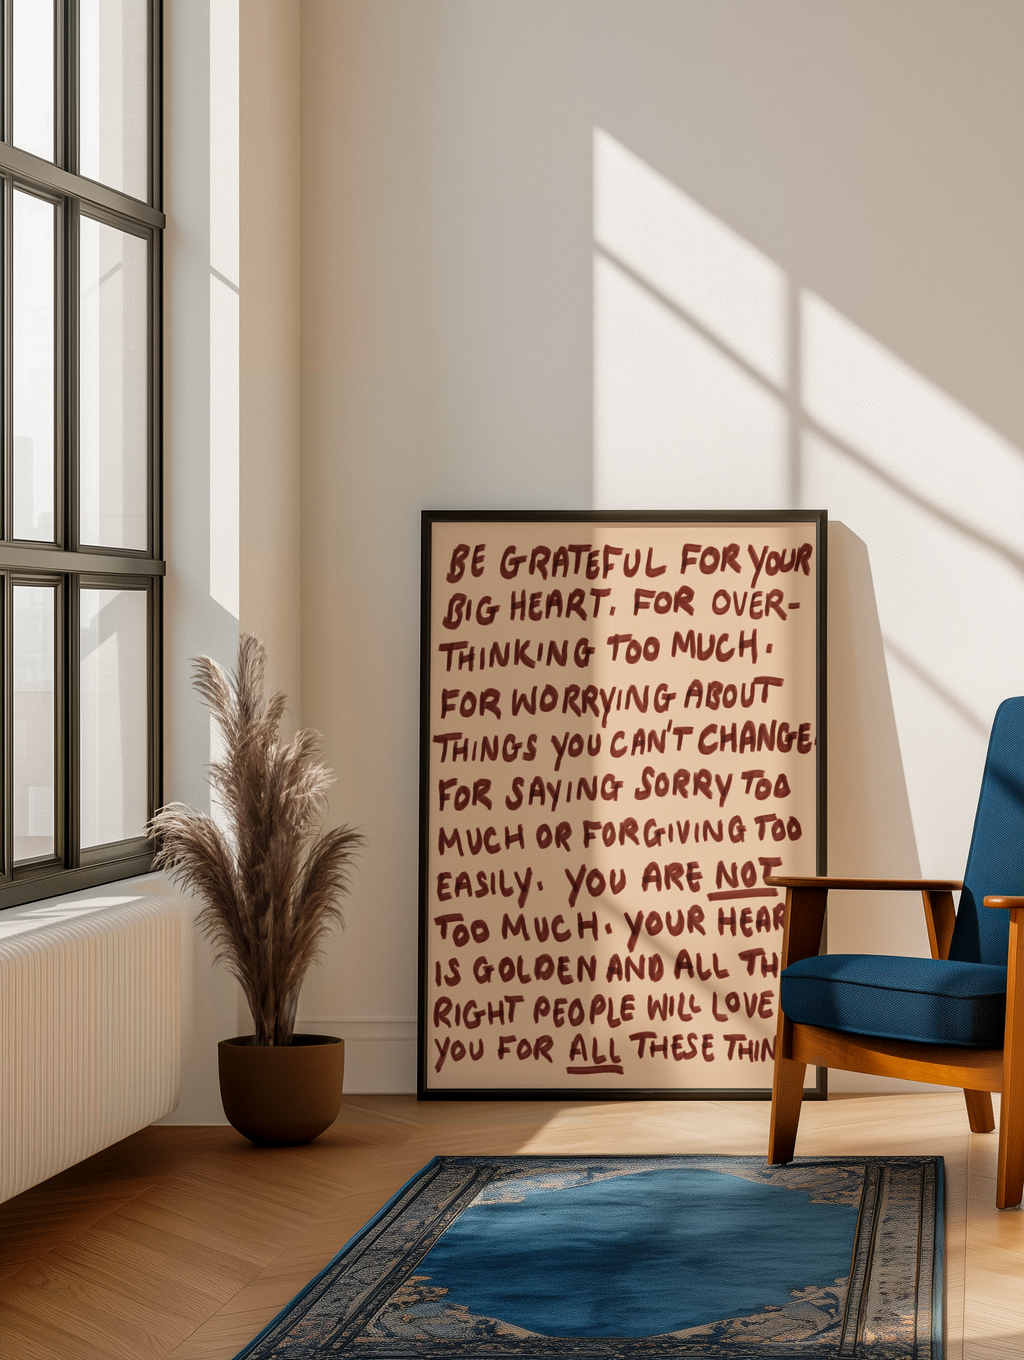 BE GRATEFUL FOR YOUR
BIG HEART. FOR OVER-
THINKING TOO MUCH.
FOR WORRYING ABOUT
THINGS YOU CAN'T CHANGE.
FOR SAYING SORRY TOO
MUCH OR FORGIVING TOO
EASILY. YOU ARE NOT
TOO MUCH. YOUR HEAR
IS GOLDEN AND ALL TH
RIGHT PEOPLE WILL LOVE
YOU FOR ALL THESE THIN